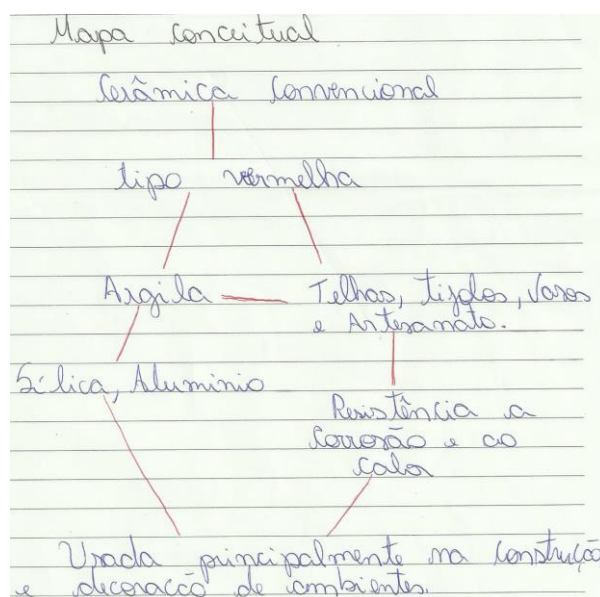 Mapa conceitual
Cerâmica Convencional
tipo vermelha
Argila Telhas, tijolos, Vasos
e Artesanato.
Sílica, Aluminio
Resistência a
Corrosão e ao
calor
Usada principalmente na construção
e decoração de ambientes.